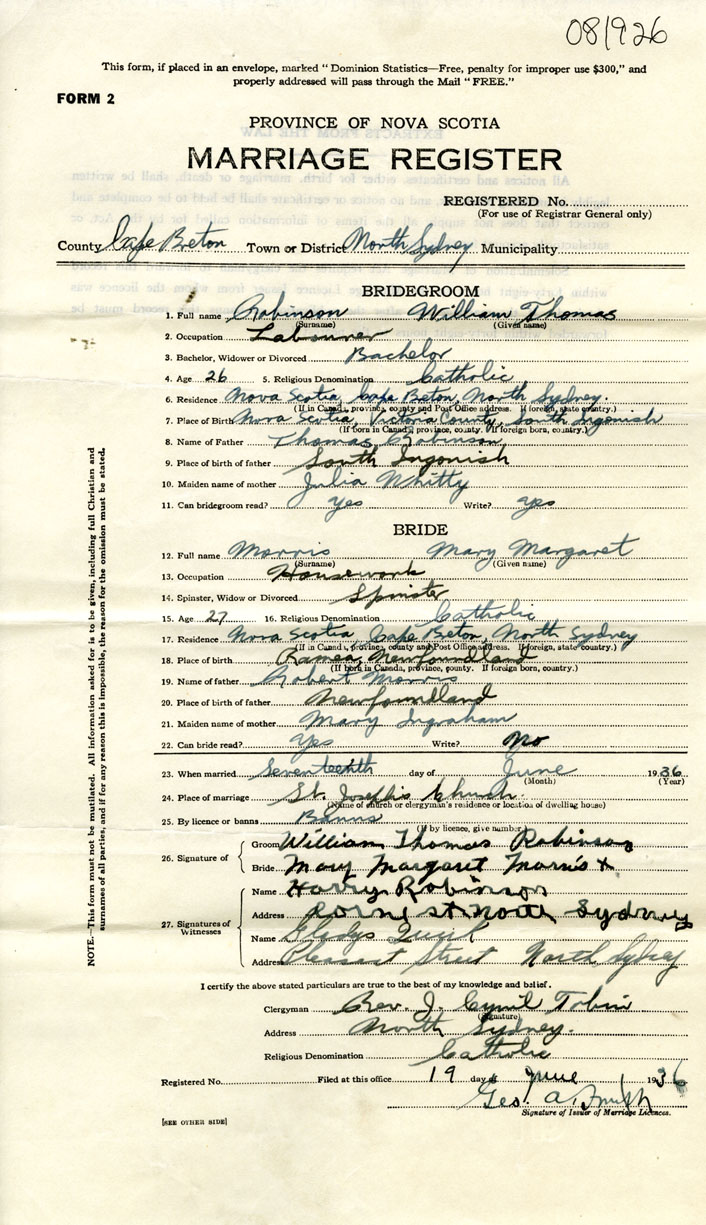 081926
This form, if placed in an envelope, marked "Dominion Statistics—Free, penalty for improper use $300," and
properly addressed will pass through the Mail "FREE."
FORM 2
PROVINCE OF NOVA SCOTIA
MARRIAGE REGISTER
REGISTERED No.
(For use of Registrar General only)
County Cape Breton Town or District North Sydney Municipality
BRIDEGROOM
1. Full name Robinson William Thomas
(Surname) (Given name)
2. Occupation Labourer
3. Bachelor, Widower or Divorced Bachelor
4. Age 26 5. Religious Denomination Catholic
6. Residence Nova Scotia, Cape Breton, North Sydney.
(If in Canada, province, county and Post Office address. If foreign, state country.)
7. Place of Birth Nova Scotia, Victoria County, South Ingonish
(If born in Canada, province, county. If foreign born, country.)
8. Name of Father Thomas Robinson
9. Place of birth of father South Ingonish
10. Maiden name of mother Julia Whitty
11. Can bridegroom read? yes Write? yes
BRIDE
12. Full name Morris Mary Margaret
(Surname) (Given name)
13. Occupation Housework
14. Spinster, Widow or Divorced Spinster
15. Age 27 16. Religious Denomination Catholic
17. Residence Nova Scotia, Cape Breton, North Sydney
(If in Canada, province, county and Post Office address. If foreign, state country.)
18. Place of birth Ramea, Newfoundland
(If born in Canada, province, county. If foreign born, country.)
19. Name of father Robert Morris
20. Place of birth of father Newfoundland
21. Maiden name of mother Mary Ingraham
22. Can bride read? Yes Write? No
23. When married Seventeenth day of June 1936
(Month) (Year)
24. Place of marriage St. Joseph's Church.
(Name of church or clergyman's residence or location of dwelling house)
25. By licence or banns Banns
(If by licence, give number)
26. Signature of Groom William Thomas Robinson
Bride Mary Margaret Morris x
27. Signatures of Witnesses
Name Harry Robinson
Address st North Sydney
Name Gladys Quirk
Address Pleasant Street North Sydney
I certify the above stated particulars are true to the best of my knowledge and belief.
Clergyman Rev. J. Cyril Tobin
(Signature)
Address North Sydney.
Religious Denomination Catholic
Registered No. Filed at this office 19 day of June 1936
Geo. A. Smith
Signature of Issuer of Marriage Licences.
[SEE OTHER SIDE]
NOTE.—This form must not be mutilated. All information asked for is to be given, including full Christian and
surnames of all parties, and if for any reason this is impossible, the reason for the omission must be stated.